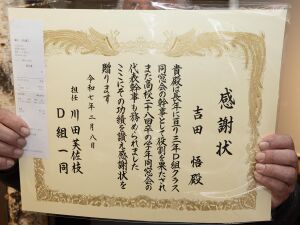 感謝状
吉田 悟 殿
貴殿は長年に亘り三年D組クラス
同窓会の幹事として役割を果たされ
また高校二十八卒の学年同窓会の
代表幹事も務められました
ここにその功績を讃え感謝状を
贈ります
令和七年二月八日
担任 川田芙佐枝
D組一同